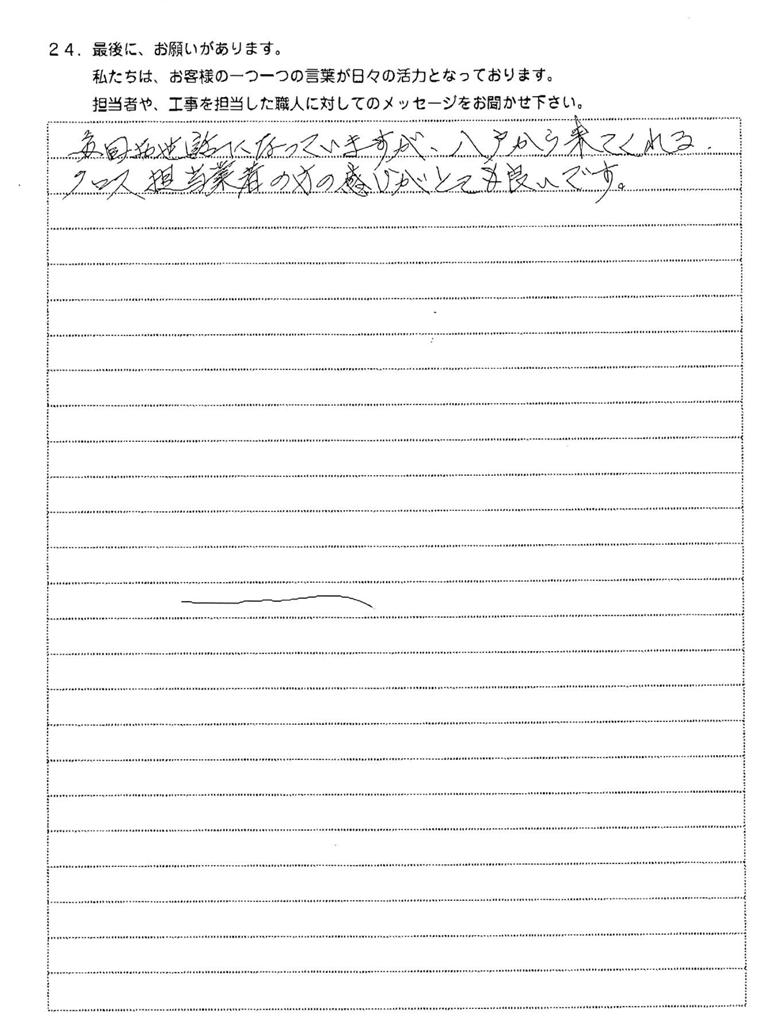 24. 最後に、お願いがあります。
私たちは、お客様の一つ一つの言葉が日々の活力となっております。
担当者や、工事を担当した職人に対してのメッセージをお聞かせ下さい。
毎回お世話になっていますが、八戸から来てくれる
クロス担当業者の方の感じがとても良いです。